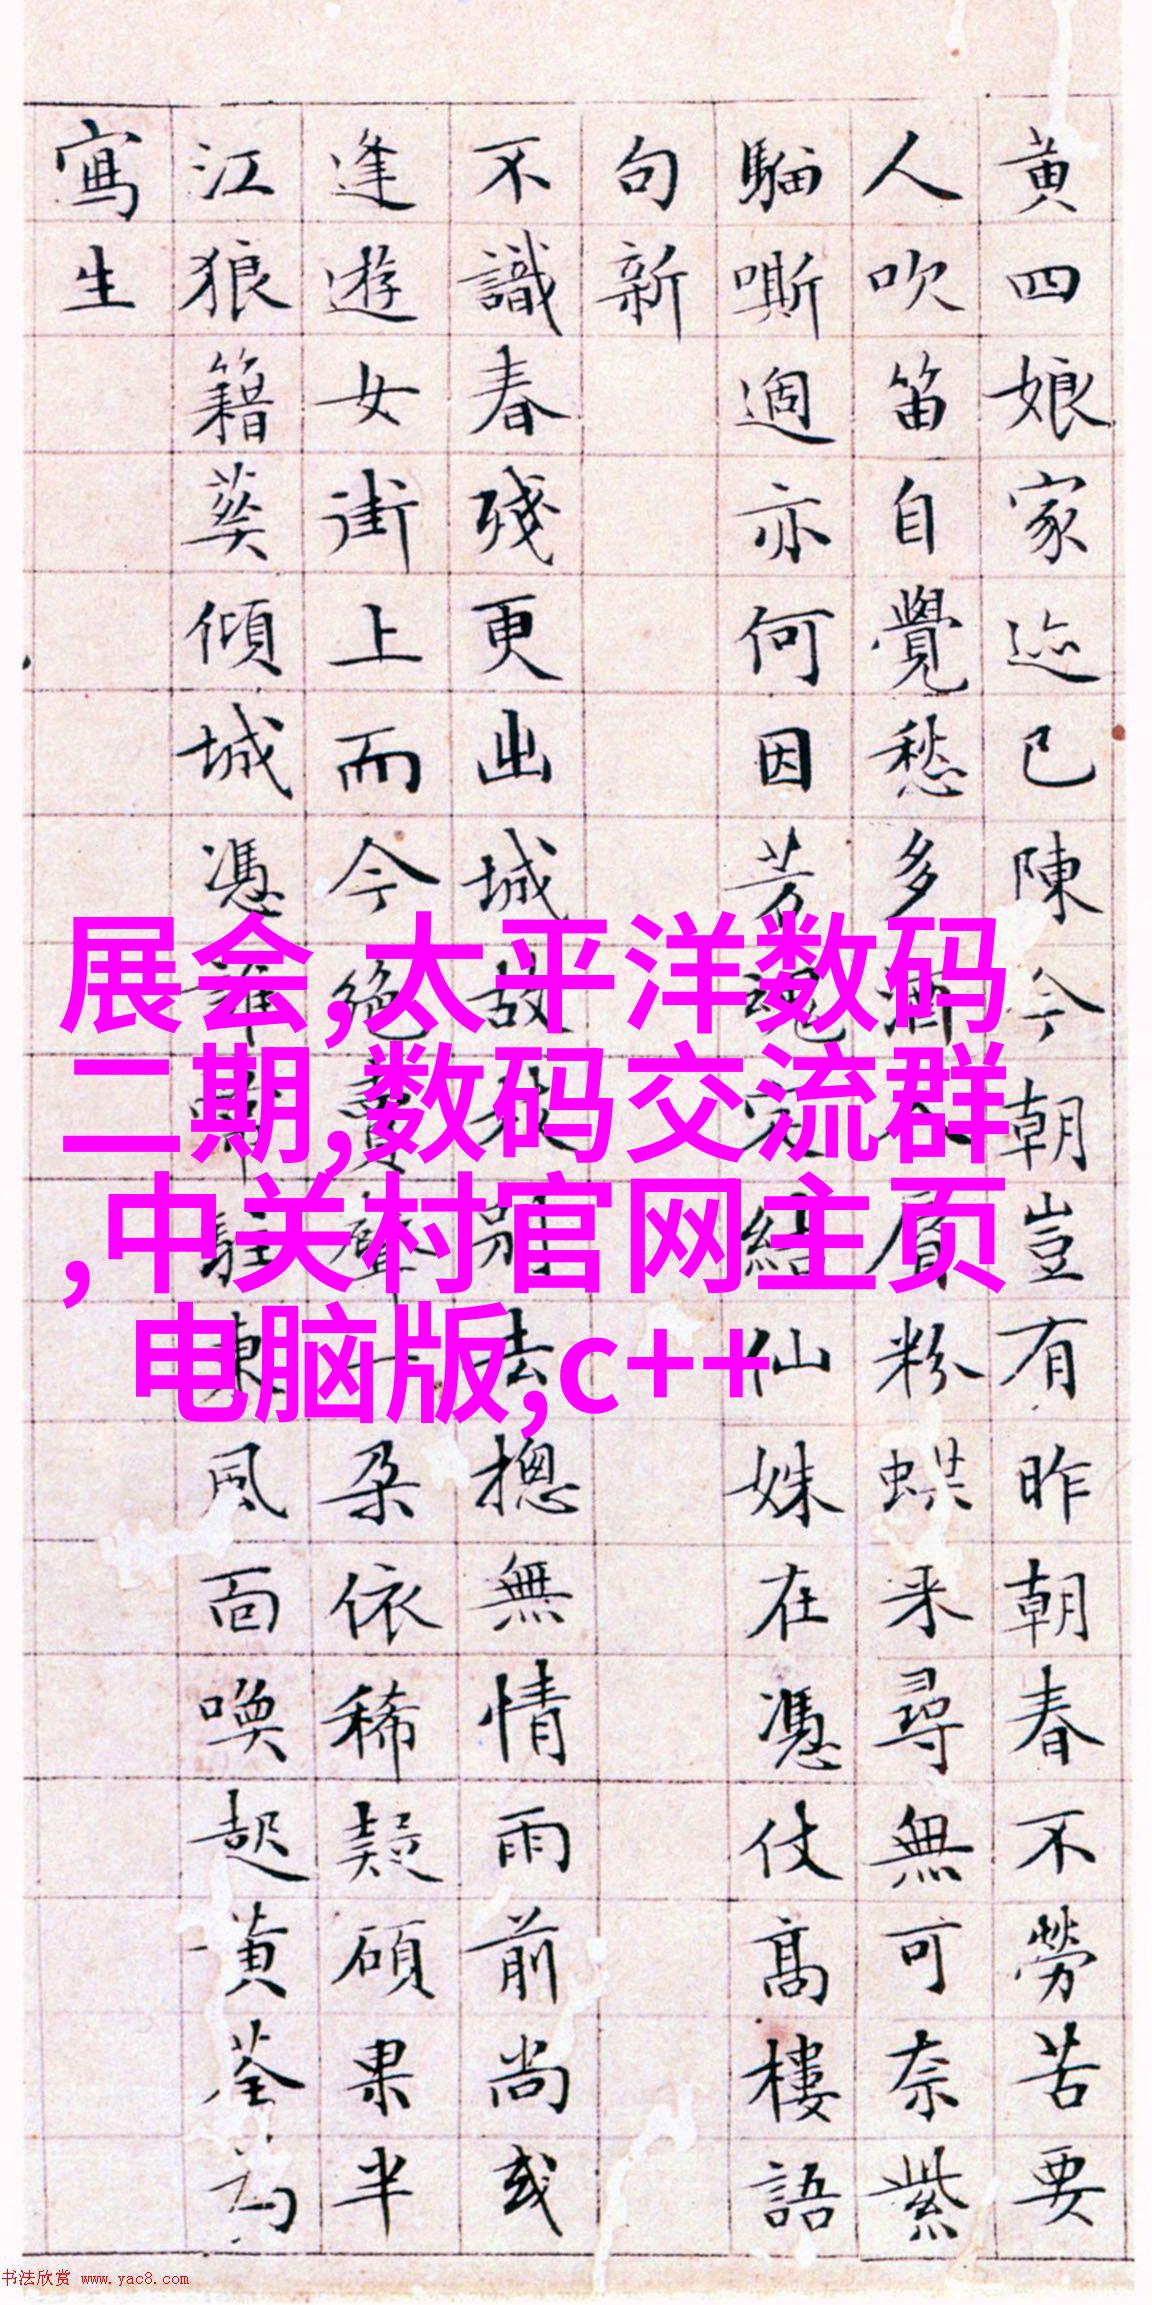 黄四娘家迹已陳今朝豈有昨朝春不勞苦要
人吹笛自覺愁多眉粉来尋無可奈紫
騮嘶過亦何因芳魂定結仙姝在憑仗高樓語
句新
不識春殘更出城故枝別去摠無情雨前尚或
逢遊女街上而今絶賣聲一朵依稀疑碩果半
江狼籍葬傾城憑誰駐東風面喚起黄荃為
寫生
展会,太平洋数码
二期,数码交流群
,中关村官网主页
电脑版,c++
书法欣赏 www.yac8.com